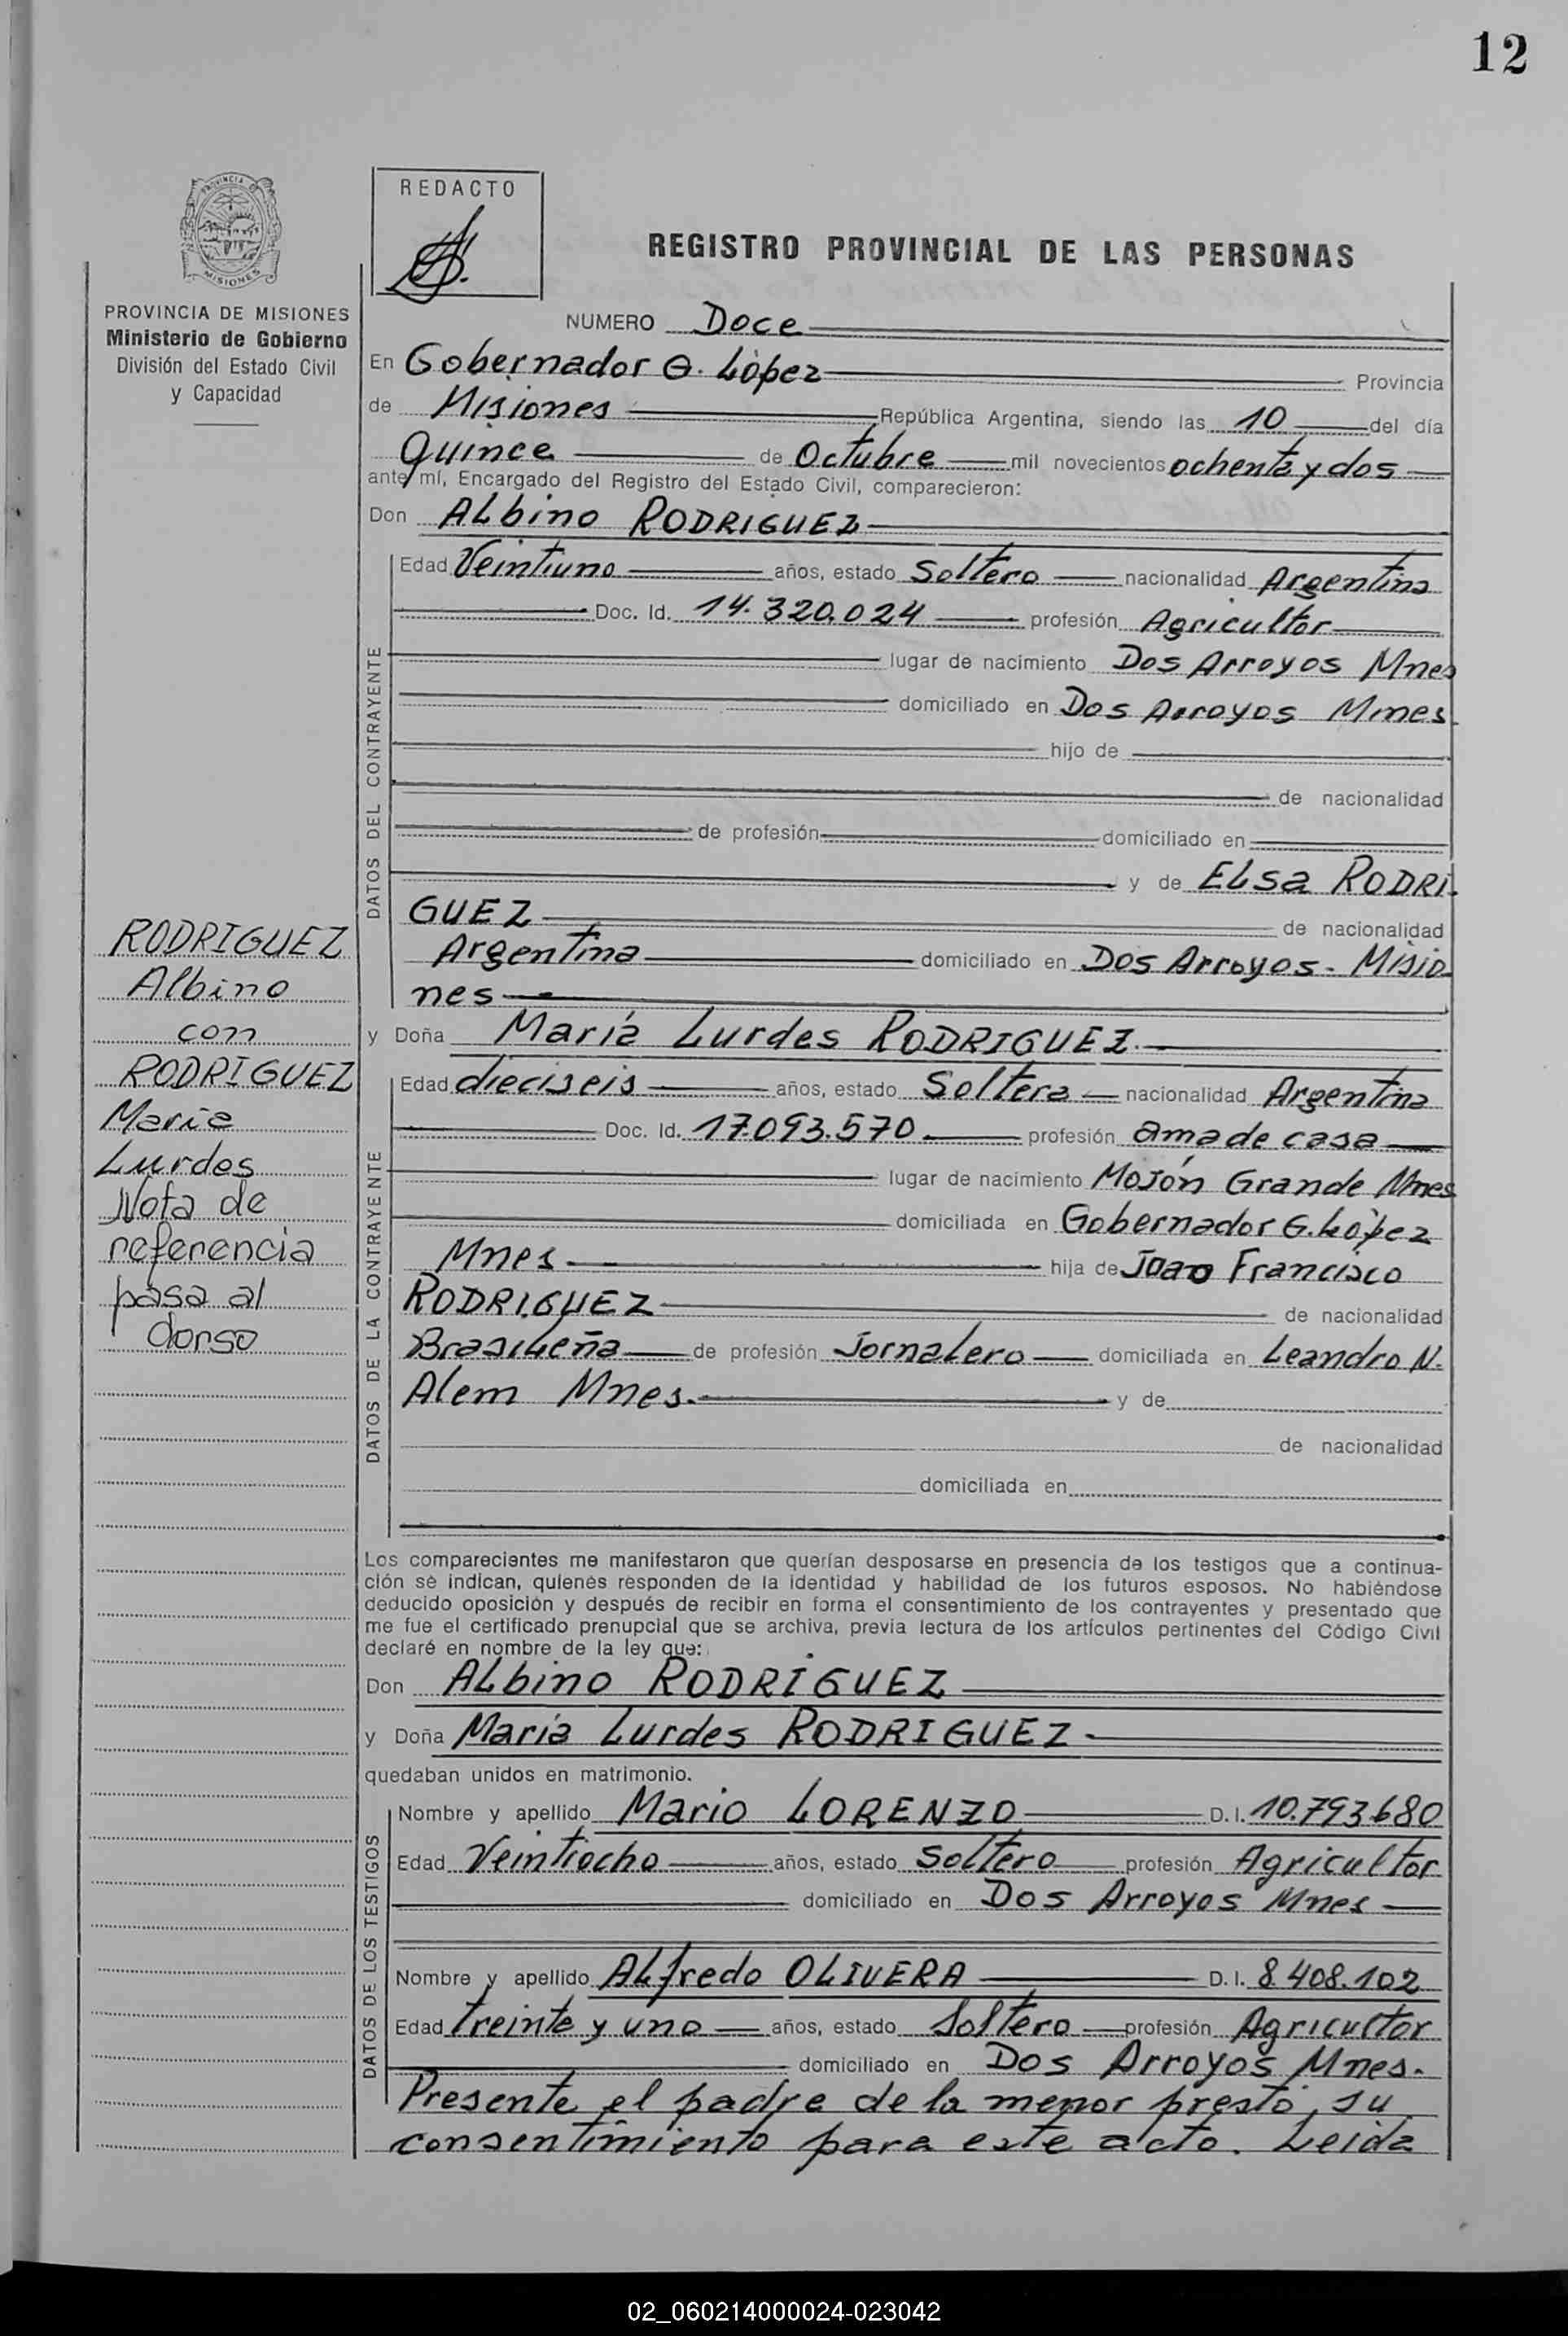 12
PROVINCIA DE
MISIONES
PROVINCIA DE MISIONES
Ministerio de Gobierno
División del Estado Civil
y Capacidad
REDACTO
REGISTRO PROVINCIAL DE LAS PERSONAS
NUMERO Doce
En Gobernador G. López Provincia
de Misiones República Argentina, siendo las 10 del día
Quince de Octubre mil novecientos ochenta y dos
ante mí, Encargado del Registro del Estado Civil, comparecieron:
Don Albino RODRIGUEZ
DATOS DEL CONTRAYENTE
Edad Veintiuno años, estado Soltero nacionalidad Argentina
Doc. Id. 14.320.024 profesión Agricultor
lugar de nacimiento Dos Arroyos Mnes
domiciliado en Dos Arroyos Mnes.
hijo de
de nacionalidad
de profesión domiciliado en
y de ELsa RODRI
GUEZ de nacionalidad
Argentina domiciliado en Dos Arroyos - Misio
nes
y Doña María Lurdes RODRIGUEZ
DATOS DE LA CONTRAYENTE
Edad dieciseis años, estado Soltera nacionalidad Argentina
Doc. Id. 17.093.570 profesión ama de casa
lugar de nacimiento Mojón Grande Mnes
domiciliada en Gobernador G. López
Mnes hija de Joao Francisco
RODRIGUEZ de nacionalidad
Brasileña de profesión Jornalero domiciliada en Leandro N.
Alem Mnes. y de
de nacionalidad
domiciliada en
RODRIGUEZ
Albino
con
RODRIGUEZ
Maria
Lurdes
Nota de
referencia
pasa al
dorso
Los comparecientes me manifestaron que querían desposarse en presencia de los testigos que a continua-
ción se indican, quienes responden de la identidad y habilidad de los futuros esposos. No habiéndose
deducido oposición y después de recibir en forma el consentimiento de los contrayentes y presentado que
me fue el certificado prenupcial que se archiva, previa lectura de los artículos pertinentes del Código Civil
declaré en nombre de la ley que:
Don ALbino RODRIGUEZ
y Doña María Lurdes RODRIGUEZ
quedaban unidos en matrimonio.
DATOS DE LOS TESTIGOS
Nombre y apellido Mario LORENZO D.I. 10.793.680
Edad Veintiocho años, estado Soltero profesión Agricultor
domiciliado en Dos Arroyos Mnes
Nombre y apellido ALfredo OLIVERA D.I. 8.408.102
Edad treinta y uno años, estado Soltero profesión Agricultor
domiciliado en Dos Arroyos Mnes.
Presente el padre de la menor prestó su
consentimiento para este acto. Leida
02_060214000024-023042